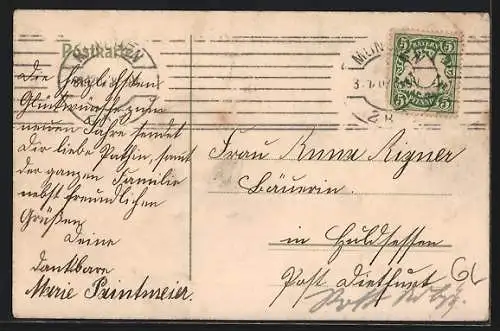 Postkarte
MÜNCHEN
BAYERN
5 5
5 PFENNIG 5
Die herzlichsten
Glückwünsche zum
neuen Jahre sendet
Dir liebe Pathin, samt
der ganzen Familie
nebst freundlichen
Grüßen
Deine
dankbare
Marie Printmeier.
Frau Anna Aigner
Bäuerin.
in Huldsessen
Post